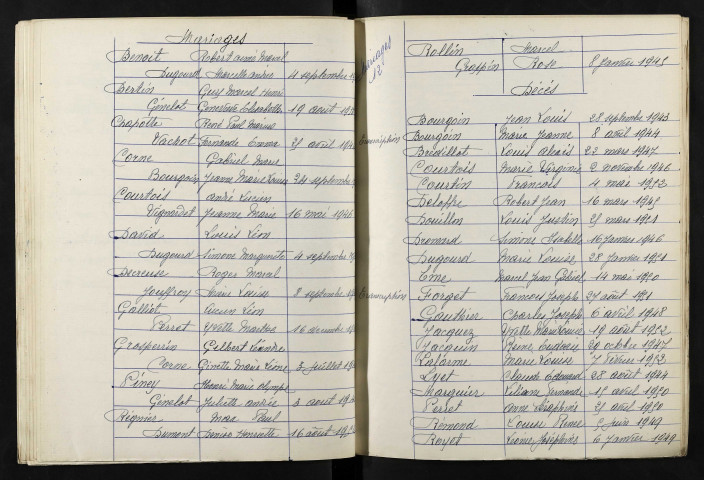 Mariages
Benoit Robert aimé Marcel
Dugourd Marcelle andrée 4 septembre
Bertin Guy Marcel Henri
Génelot Geneviève Elisabeth 19 août
Chapotte René Paul Marius
Vachot Fernande Emma 21 avril
Corne Gabriel Marie
Bourgoin Jeanne Marie Louise 24 septembre
Courtois andré Lucien
Vignardet Jeanne Marie 16 mai 1946
David Louis Léon
Dugourd Simone Marguerite 4 septembre
Decreuse Roger Marcel
Jouffroy Marie Louise 8 septembre
Galliot Lucien Léon
Perret Yvette Marthe 16 décembre
Grosperrin Gilbert
Corne Ginette Marie 3 juillet
Piney Marie Olympe
Génelot Juliette andrée 3 août
Régnier Max Paul
Dumont Denise Henriette 16 août
Mariages
12
Rollin Marcel
Grappin Rose 8 Janvier 1945
Décés
Bourgoin Jean Louis 28 septembre 1943
transcription Bourgoin Marie Jeanne 8 avril 1944
Bridillot Louis 22 mars 1947
Courtois Marie Virginie 2 novembre 1946
Courtin Francois 4 mai 1952
Delappe Robert Jean 16 mars
Douillon Louis Justin 21 mars 1951
Dromard Simone Isabelle 16 Janvier 1946
Dugourd Marie Louise 28 Janvier 1951
Eme Marcel Jean Gabriel 14 mai 1950
transcription Forget Francois Joseph 27 août
Gauthier Charles Joseph 6 avril 1948
Jacquez Yvette Marie Louise 19 août 1952
Jacquin 20 octobre 1947
Laforme Marie Louise 7 Février 1953
Lyet Claude Edouard 28 août 1944
Marquier Liliane Fernande 15 avril 1950
Perret Anne Joséphine 21 avril 1950
Remond Louise 5 juin 1949
Royet Léonie Joséphine 6 Janvier 1949